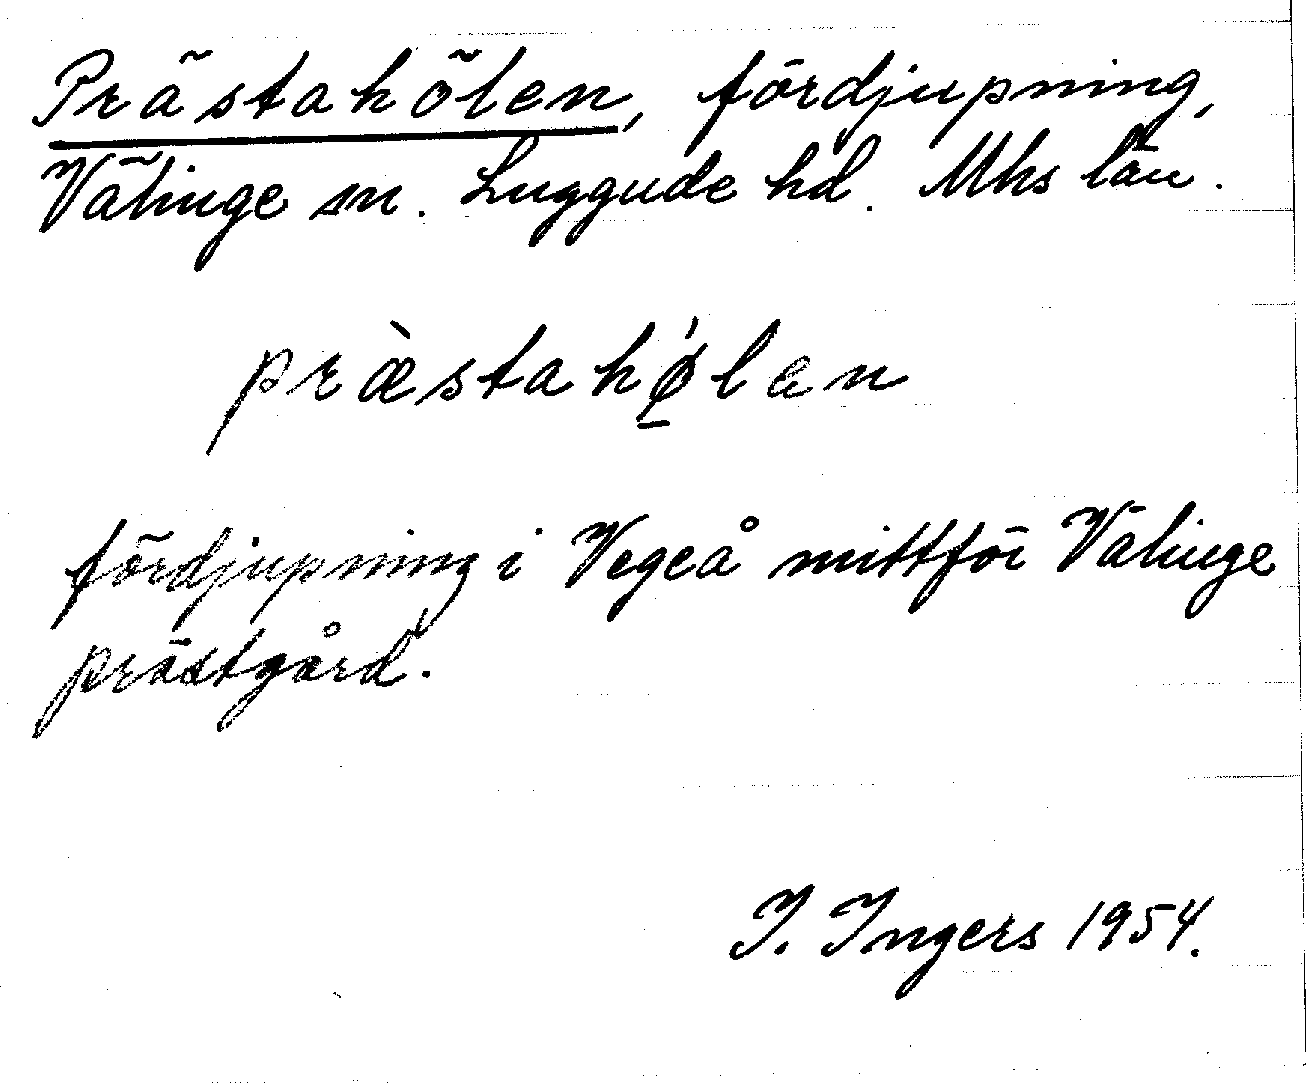 Prästahölen, fördjupning,
Välinge sn. Luggude hd. Mhs län.
præ̀stahǿ̲len
fördjupning i Vegeå mittför Välinge
prästgård.
I. Ingers 1954.